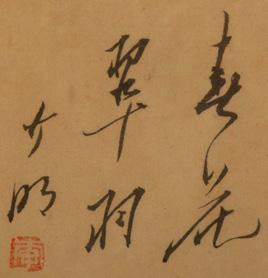 春花
翠羽
少明